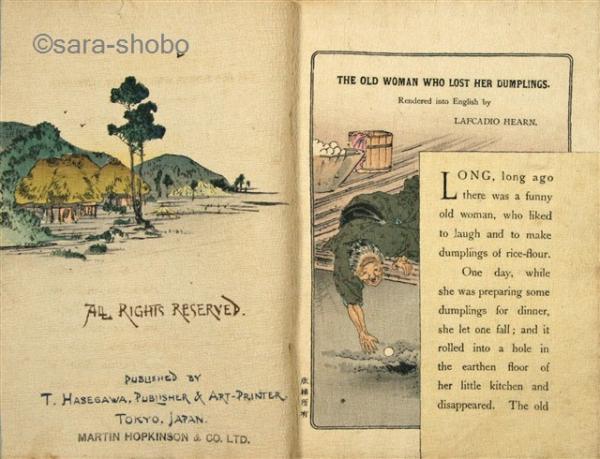 ©sara-shobo
ALL RIGHTS RESERVED.
PUBLISHED BY
T. HASEGAWA, PUBLISHER & ART-PRINTER,
TOKYO, JAPAN.
MARTIN HOPKINSON & CO. LTD.
THE OLD WOMAN WHO LOST HER DUMPLINGS.
Rendered into English by
LAFCADIO HEARN.
LONG, long ago
there was a funny
old woman, who liked
to laugh and to make
dumplings of rice-flour.
One day, while
she was preparing some
dumplings for dinner,
she let one fall; and it
rolled into a hole in
the earthen floor of
her little kitchen and
disappeared. The old
版權所有